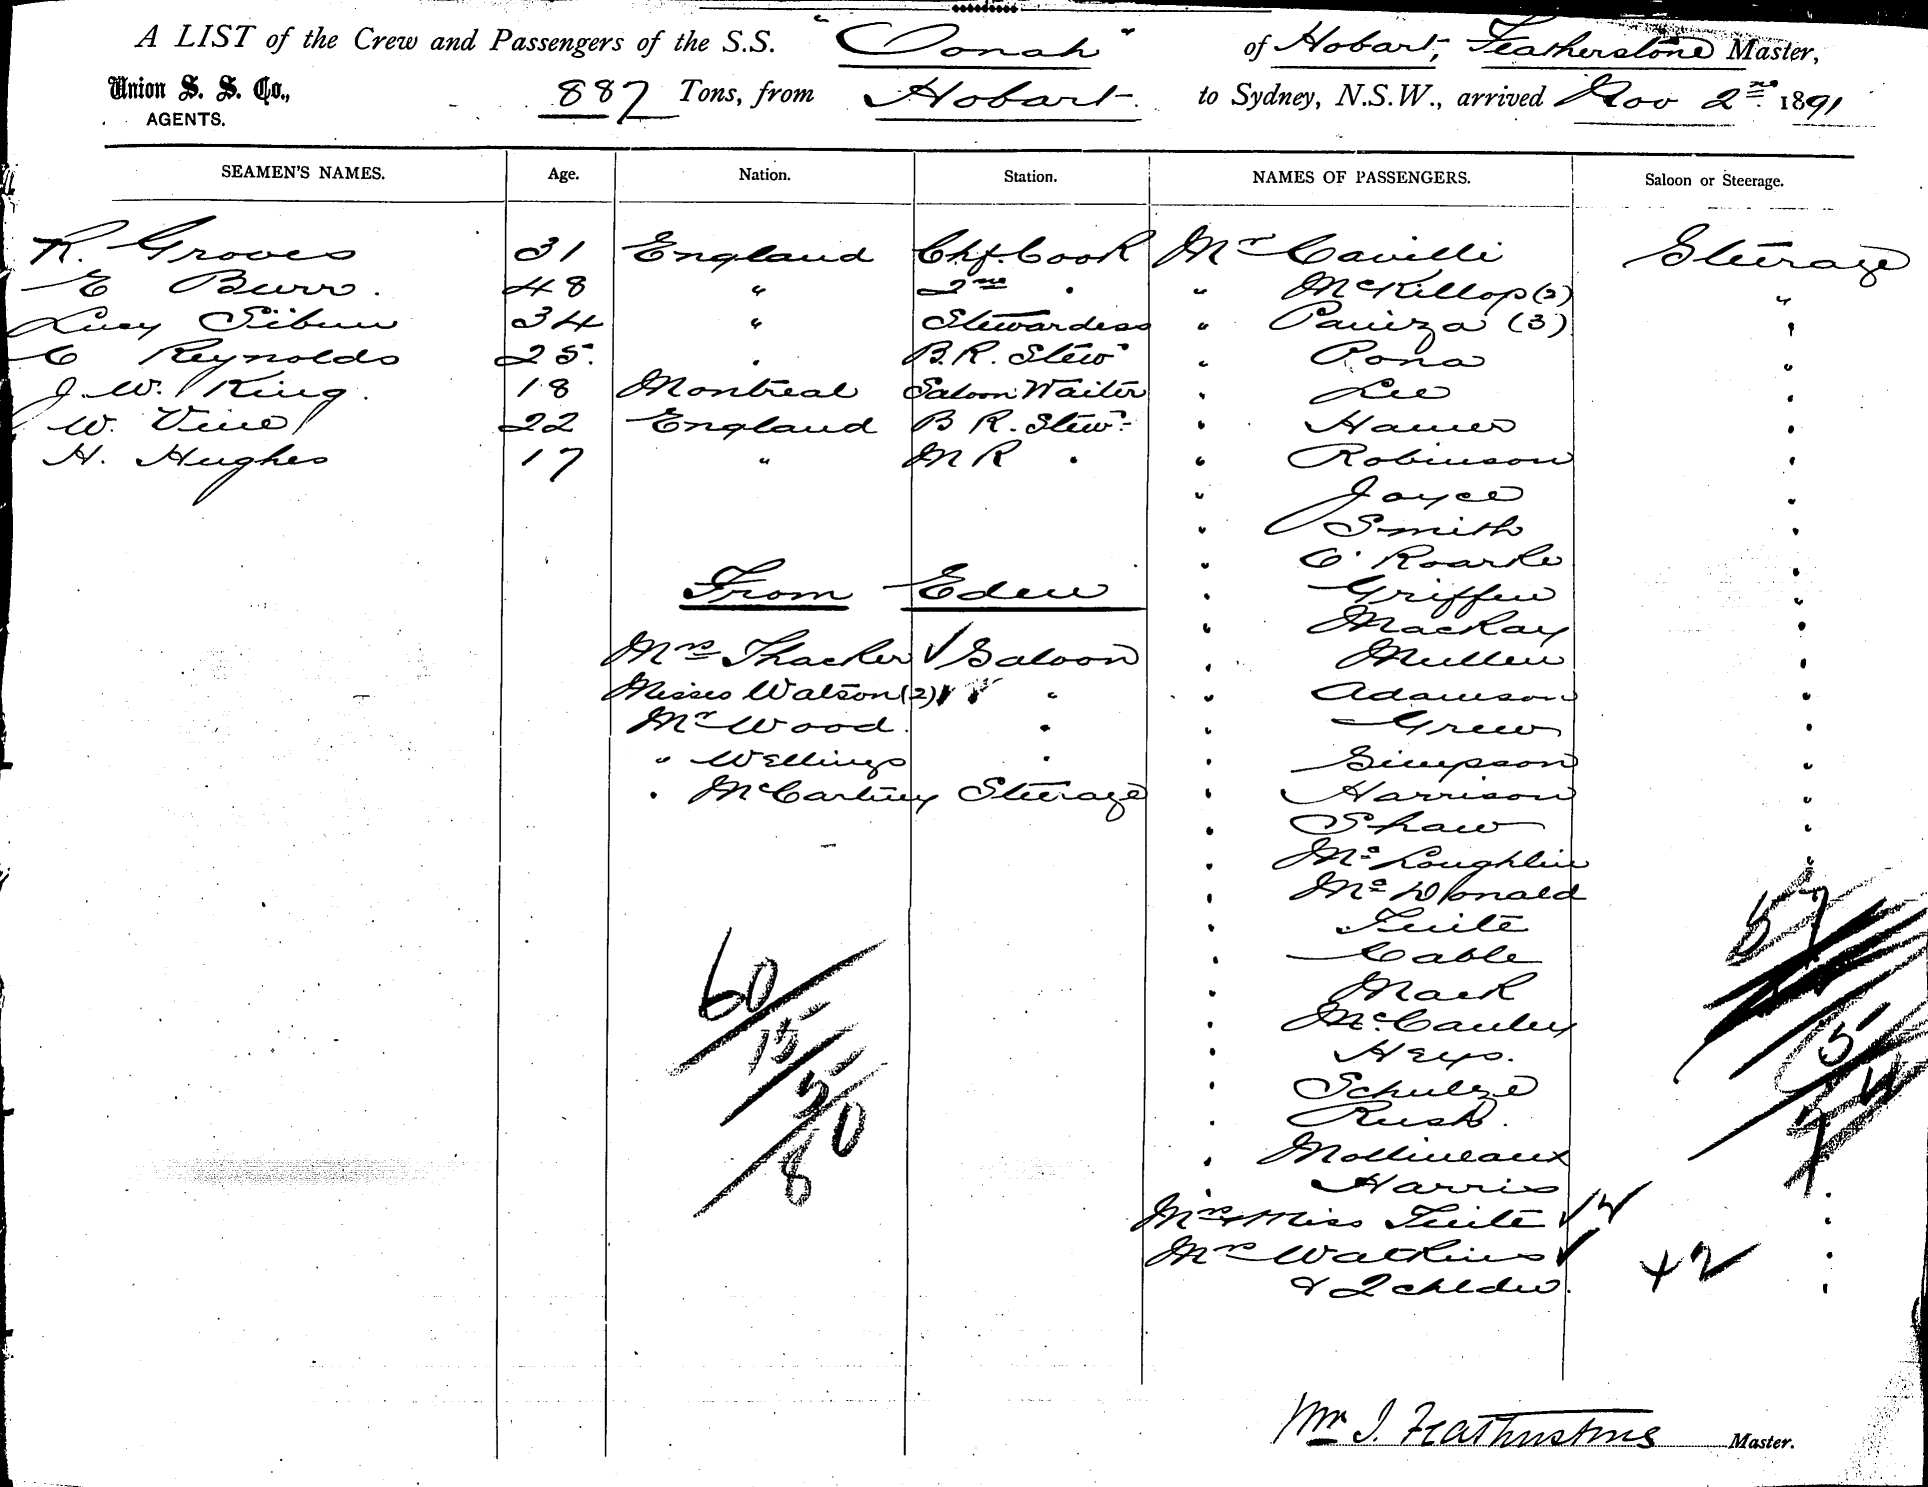 A LIST of the Crew and Passengers of the S.S. "Oonah" of Hobart, Featherstone Master,
Union S. S. Co., AGENTS. 887 Tons, from Hobart to Sydney, N.S.W., arrived Nov 2nd 1891
SEAMEN'S NAMES. Age. Nation. Station. NAMES OF PASSENGERS. Saloon or Steerage.
R. Groves 31 England Chf. Cook Mr Cavilli Steerage
E Burr. 48 " 2nd " " McKillop (2) "
Lucy Sibun 34 " Stewardess " (3) "
C Reynolds 25. " B.R. Stewd " Rona "
J. W. King. 18 Montreal Saloon Waiter " Lee "
W. Vine 22 England B R. Stewd " Hawes "
H. Hughes 17 " M R " " Robinson "
" Joyce "
" Smith "
" O'Roarke "
" Griffen "
" MacKay "
" Mullen "
" Adamson "
" Grew "
" Simpson "
" Harrison "
" Shaw "
" McLoughlin "
" McDonald
" Tuite
" Cable
" Mack
" McCauley
" Heys.
" Schulze
" Rush.
" Mollineaux
" Harris "
Mrs & Miss Tuite "
Mrs Watkins + 2 "
& 2 childn. "
From Eden
Mrs Thacker Saloon
Misses Watson (2) "
Mr Wood. "
" Wellings "
" McCartney Steerage
60
15
5
80
57
15
Wm J. Featherstone Master.